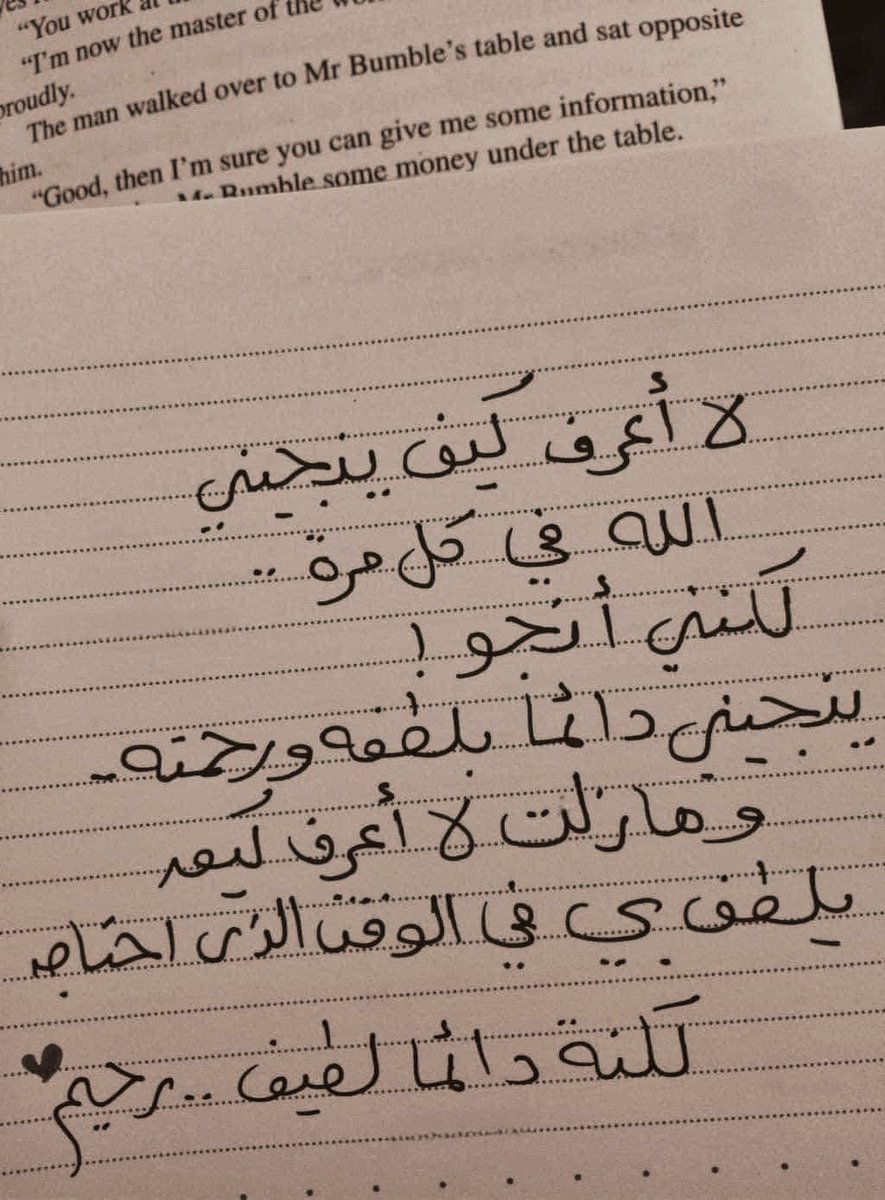 “You work at
“I’m now the master of the
proudly.
The man walked over to Mr Bumble’s table and sat opposite
him.
“Good, then I’m sure you can give me some information,”
Mr Bumble some money under the table.
لا أعرف كيف ينجيني
الله في كل مرة ..
لكنني أنجو !
ينجيني دائما بلطفه ورحمته ..
وما زلت لا أعرف كيف
يلطف بي في الوقت الذى احتاجه
لكنة دائما لطيف .. رحيم ♥